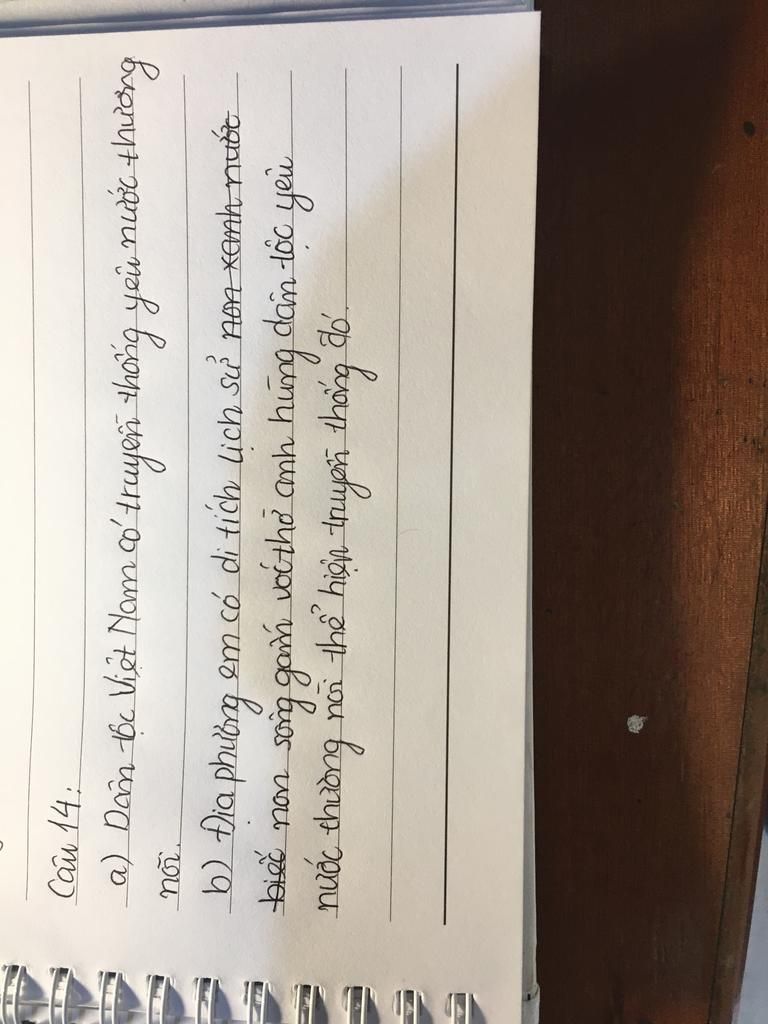 Câu 14:
a) Dân tộc Việt Nam có truyền thống yêu nước thương
nòi.
b) Địa phương em có di tích lịch sử non xanh nước
biếc non sông gấm vóc thờ anh hùng dân tộc yêu
nước thường nòi thể hiện truyền thống đó.